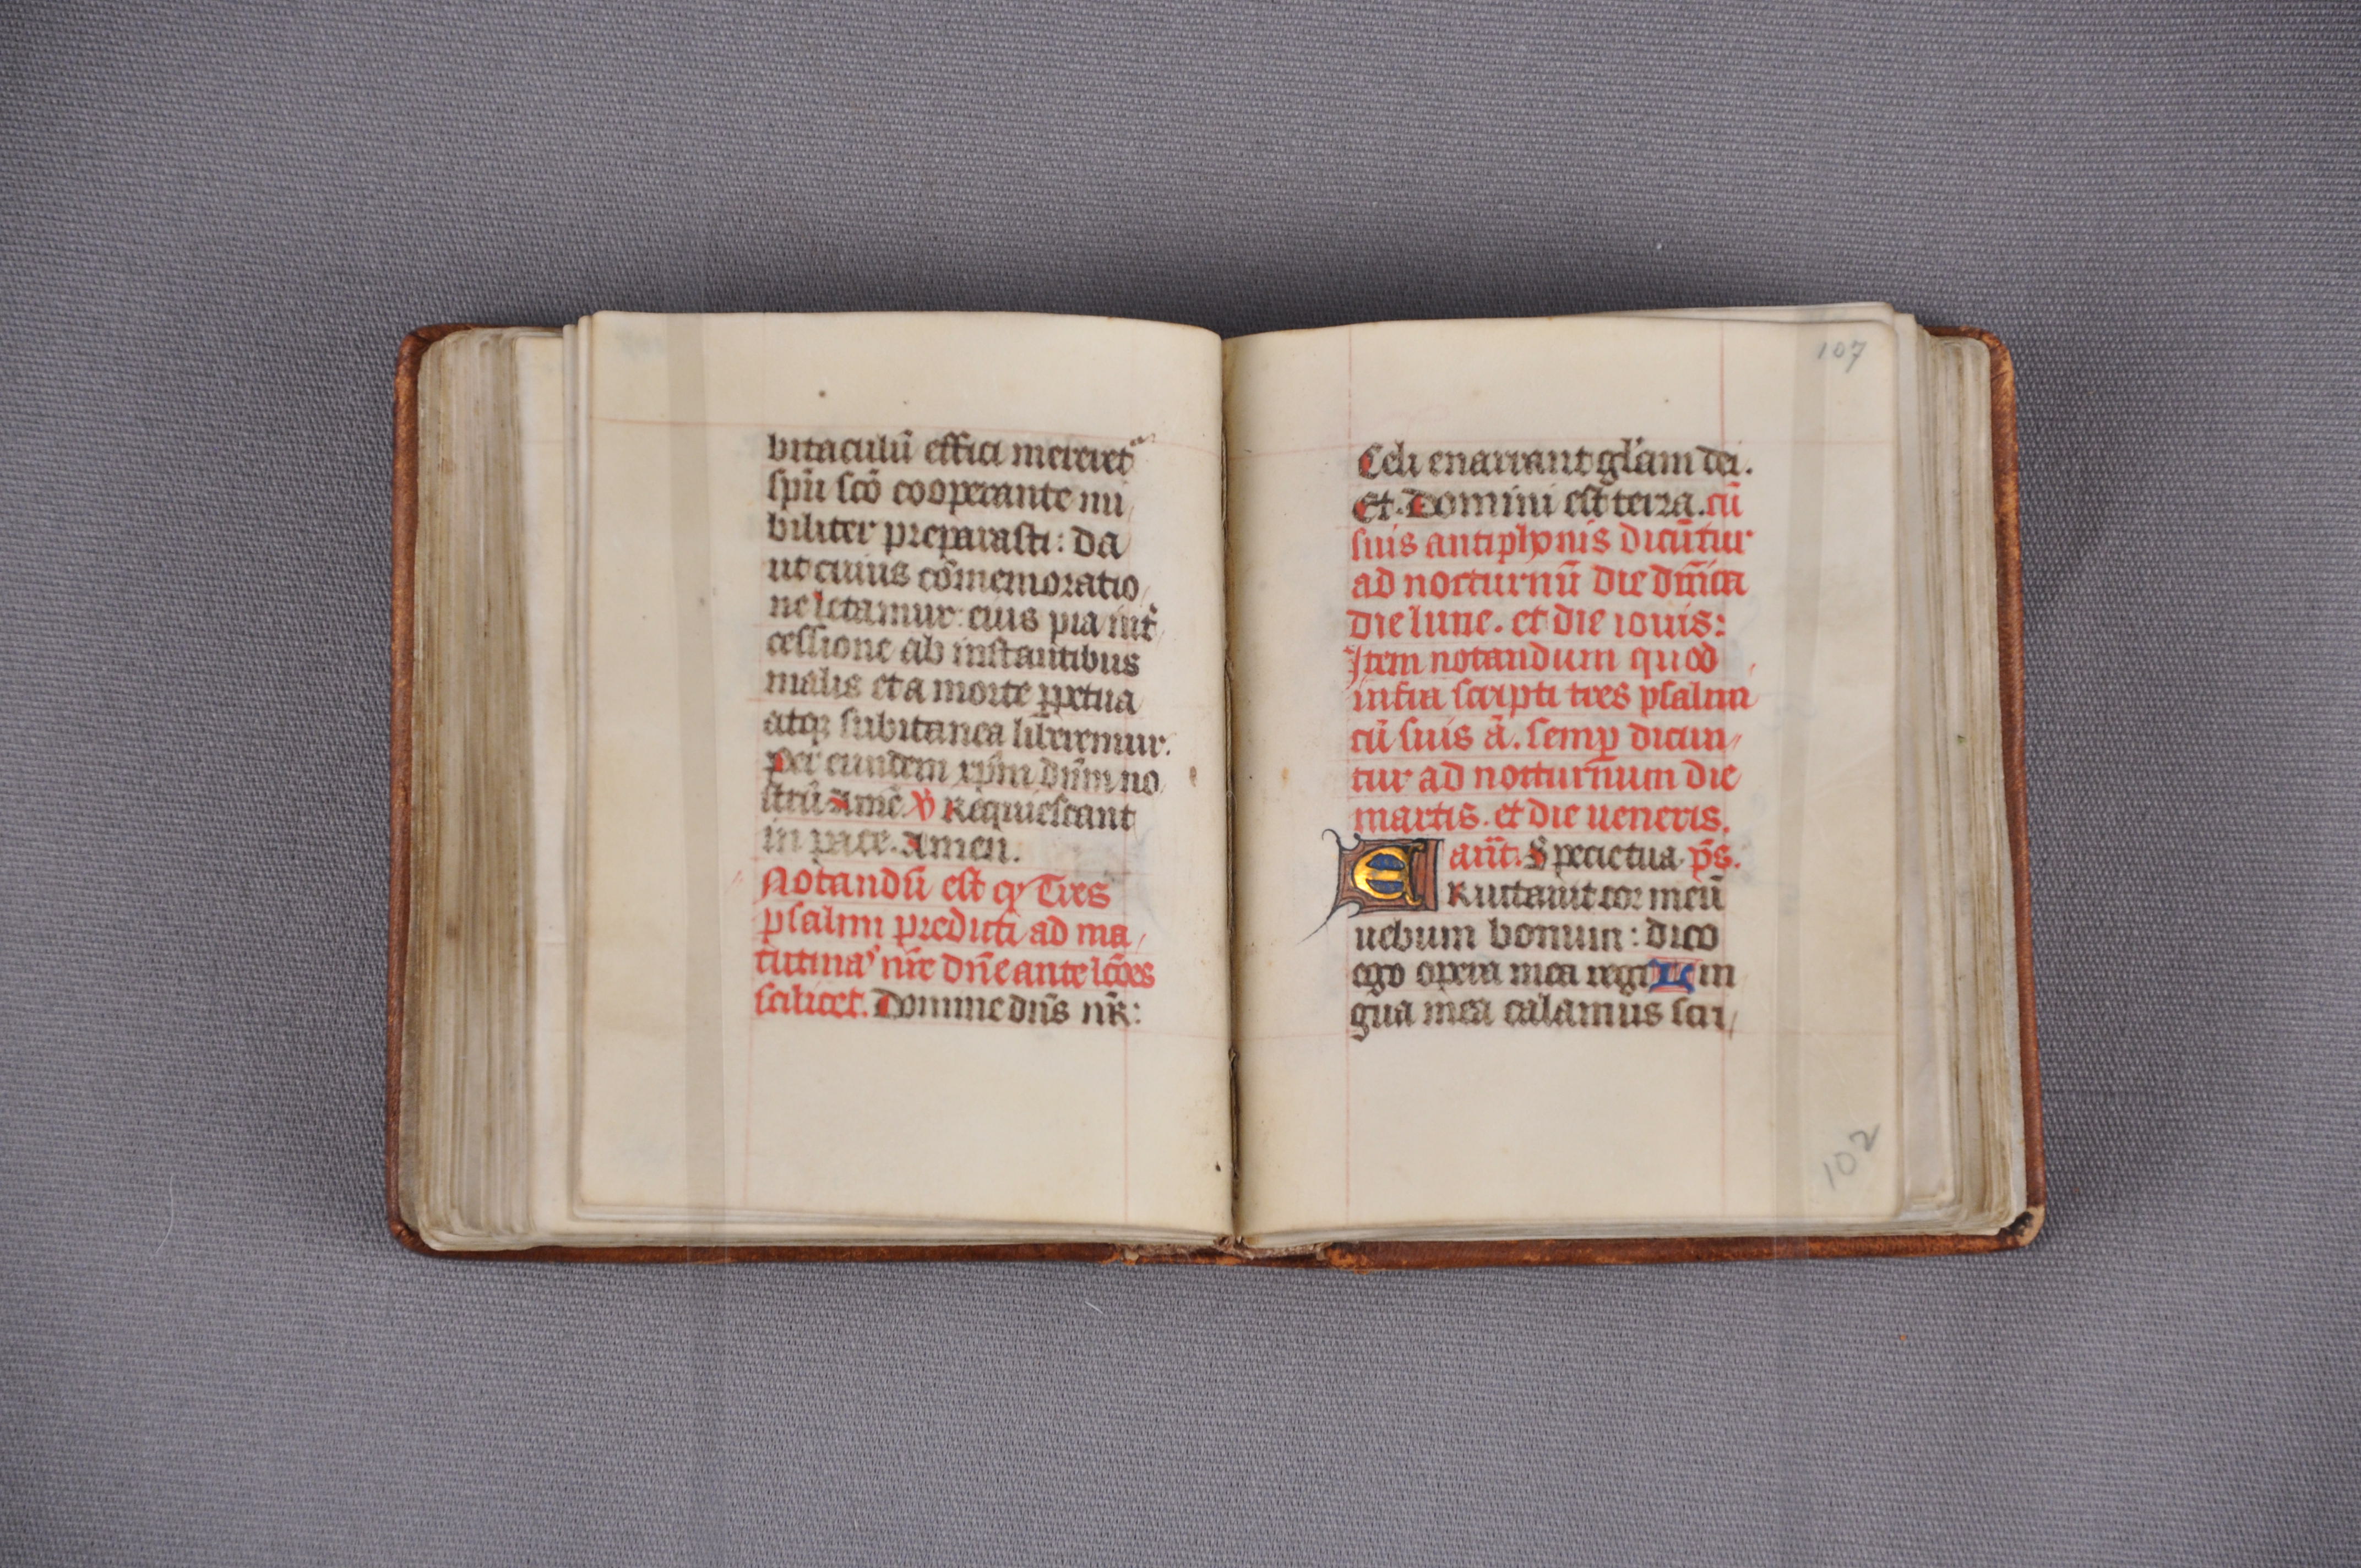 bitaculū effici mereret᷑
spū scō cooperante mi
biliter preparasti: da
ut cuius cōmemoratio
ne letamur: eius pia int̄
cessione ab instantibus
malis et a morte ꝑpetua
atqꝫ subitanea liberemur.
Per eundem xp̄m dn̄m no
strū Amē ℣ Requiescant
in pace. Amen.
Notandū est ꝙ Tres
psalmi predicti ad ma
tutinas nr̄e dn̄e ante lc̄ōes
scilicet. Domine dn̄s nr̄:
107
Celi enarrant gl̄am dei.
Et. Domini est terra. cū
suis antiphonis dicūtur
ad nocturnū die dn̄ica
die lune. et die iouis:
Item notandum quod
infra scripti tres psalmi
cū suis ā. semꝑ dicun
tur ad nocturnum die
martis. et die ueneris.
ant̄. Specie tua. p̄s.
ERuctauit cor meū
uebum bonum: dico
ego opera mea regi Lin
gua mea calamus scri
102